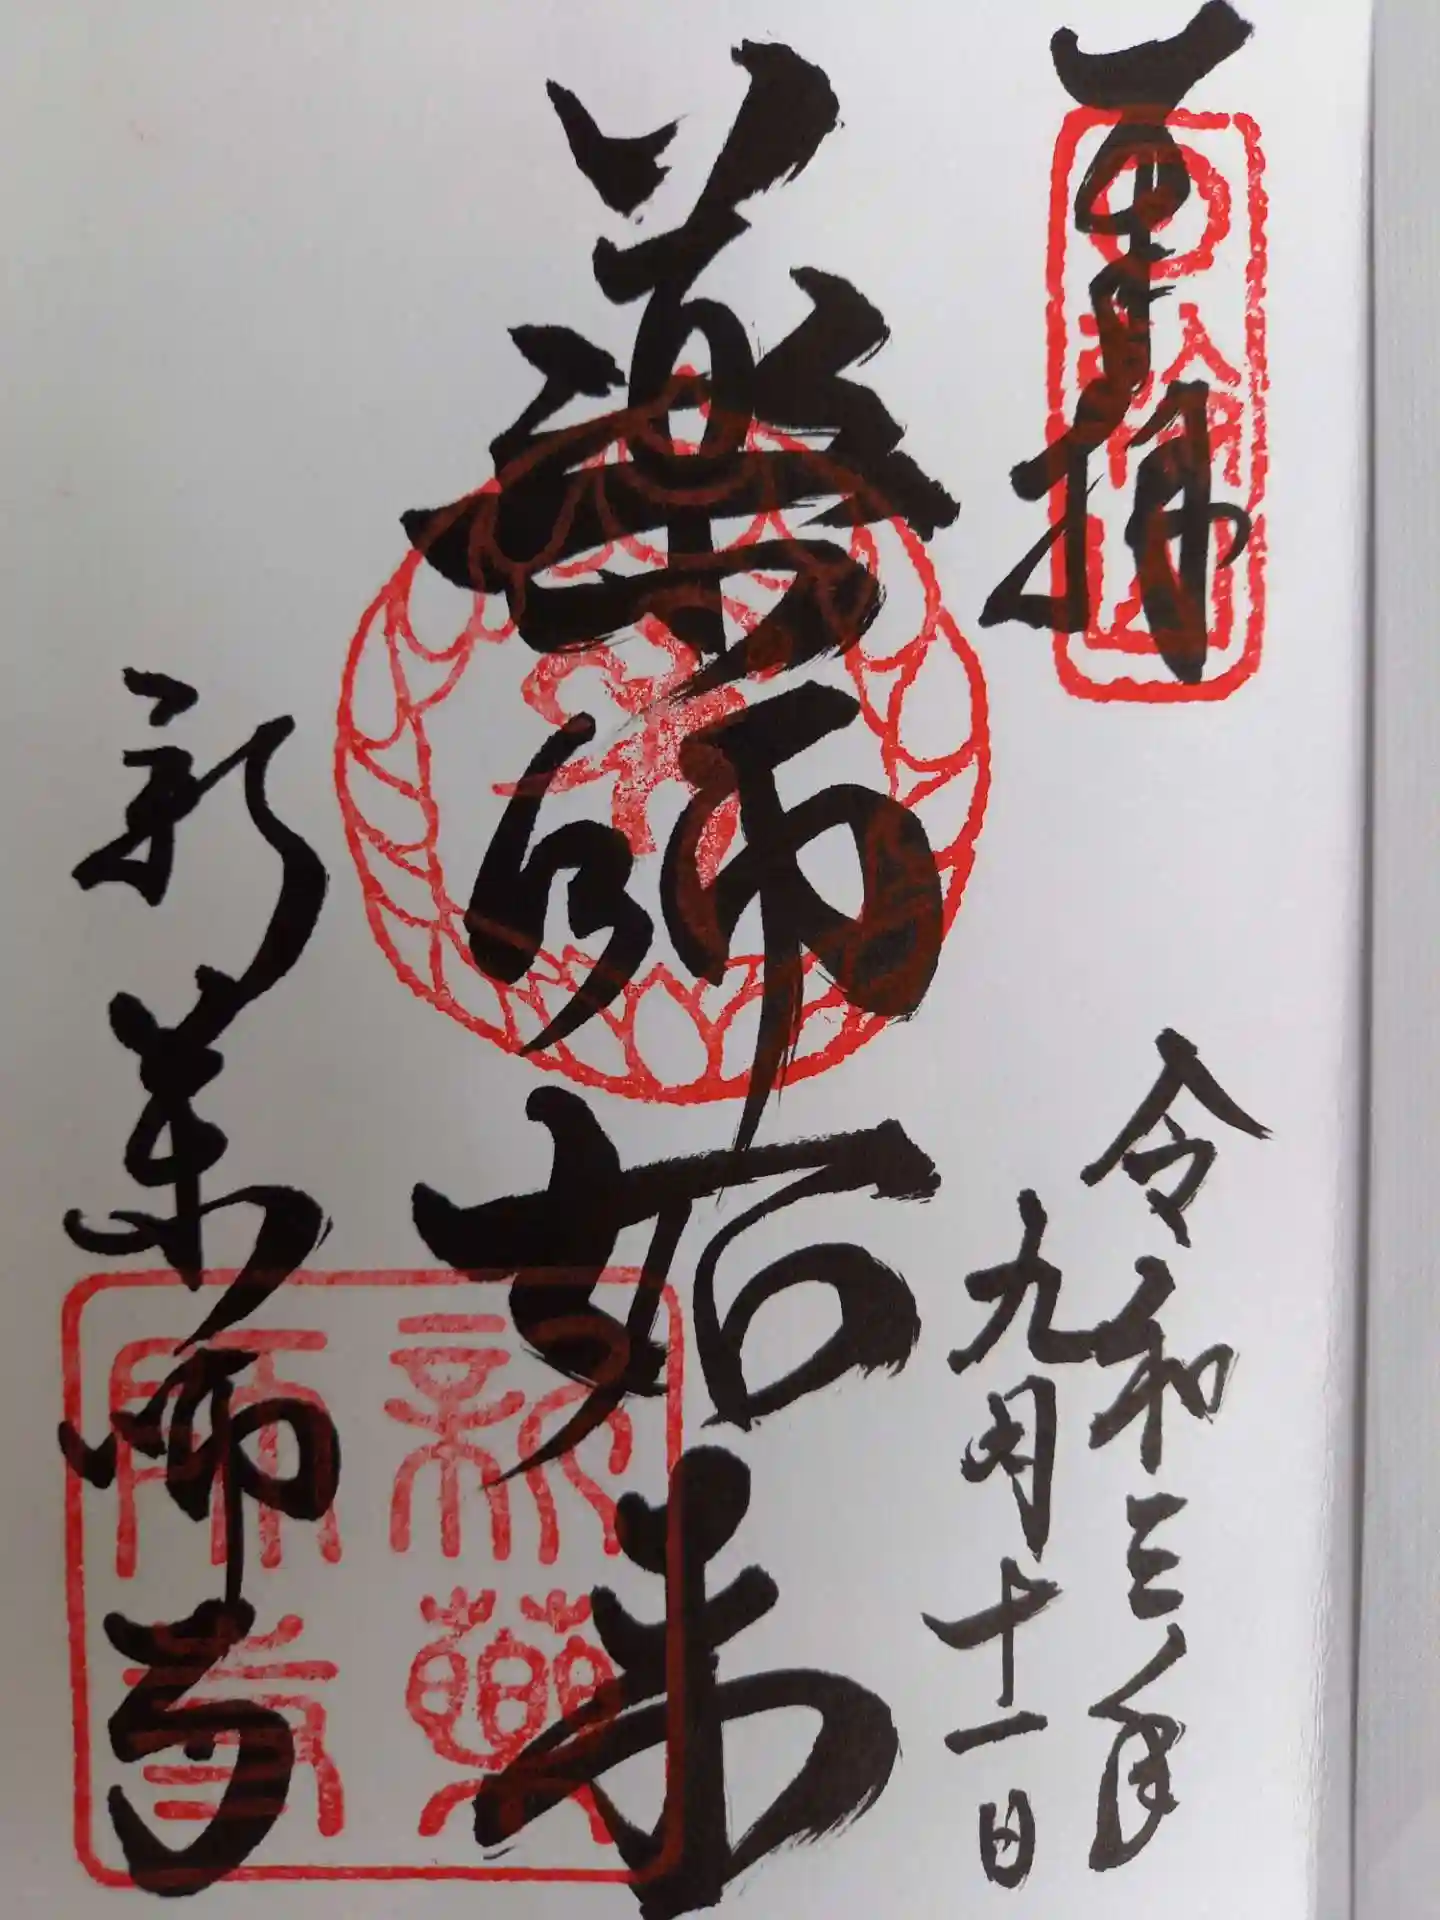 奉拝
令和三年
九月十一日
薬師如来
新薬師寺
新薬
師寺